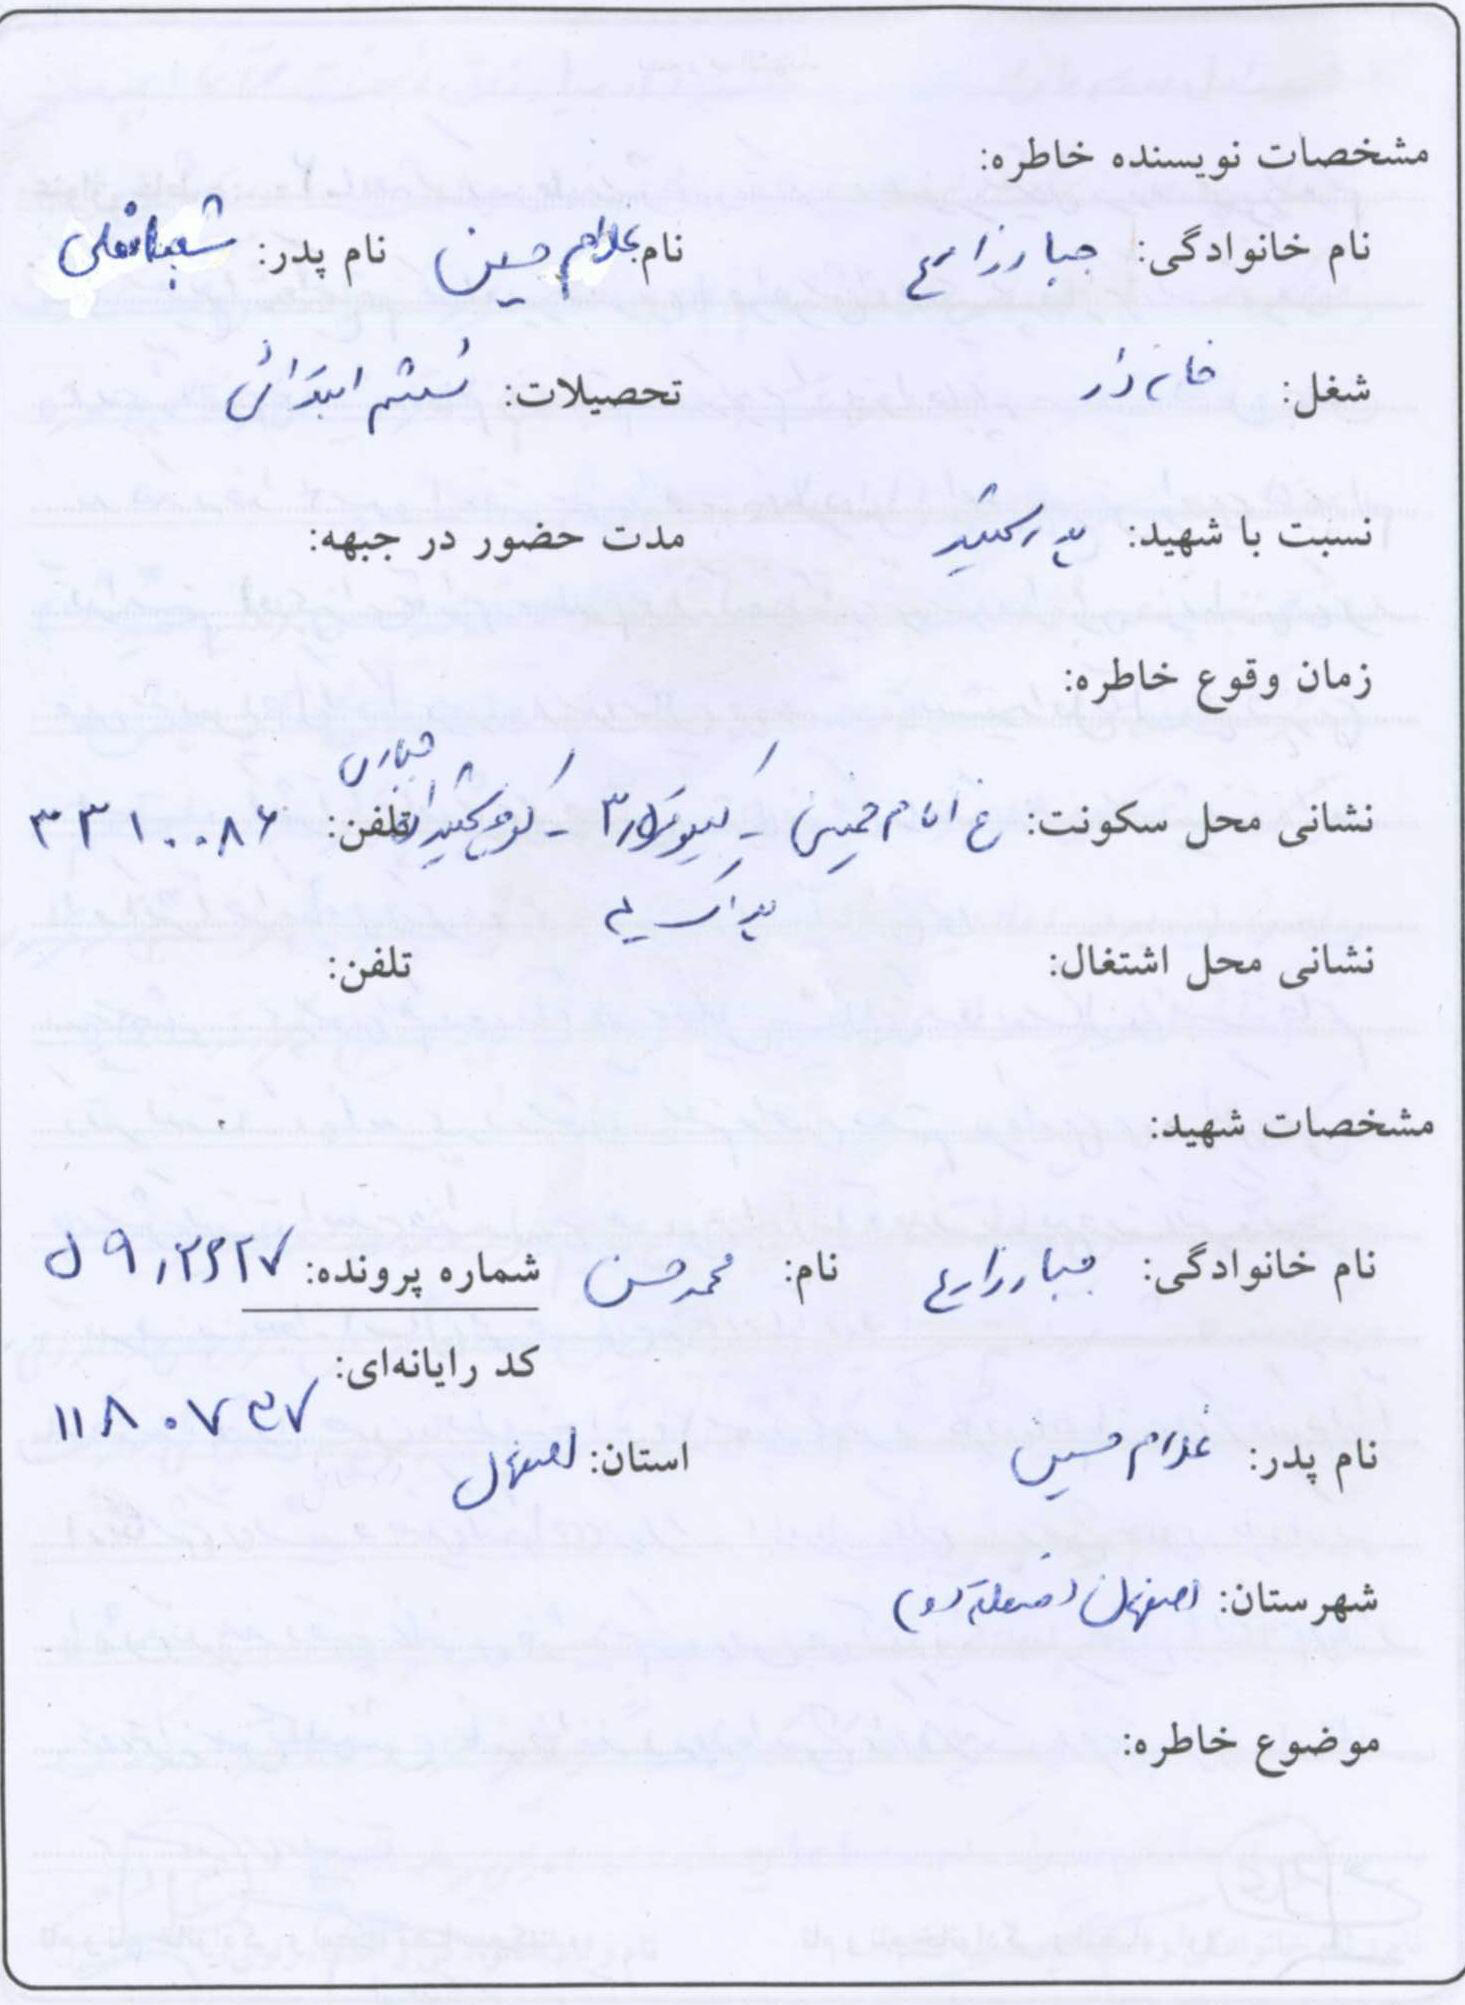 مشخصات نویسنده خاطره:
نام خانوادگی: جبارزارع نام: غلام حسین نام پدر: شعبانعلی
شغل: خانه دار تحصیلات: ششم ابتدائی
نسبت با شهید: پدر شهید مدت حضور در جبهه:
زمان وقوع خاطره:
نشانی محل سکونت: خ امام خمینی - کوچه شهیدان جباری تلفن: ۳۳۱۰۰۸۶
نشانی محل اشتغال: تلفن:
مشخصات شهید:
نام خانوادگی: جبارزارع نام: محمدحسن شماره پرونده:
کد رایانه‌ای:
نام پدر: غلام حسین استان: اصفهان
شهرستان: اصفهان (منطقه دو)
موضوع خاطره: